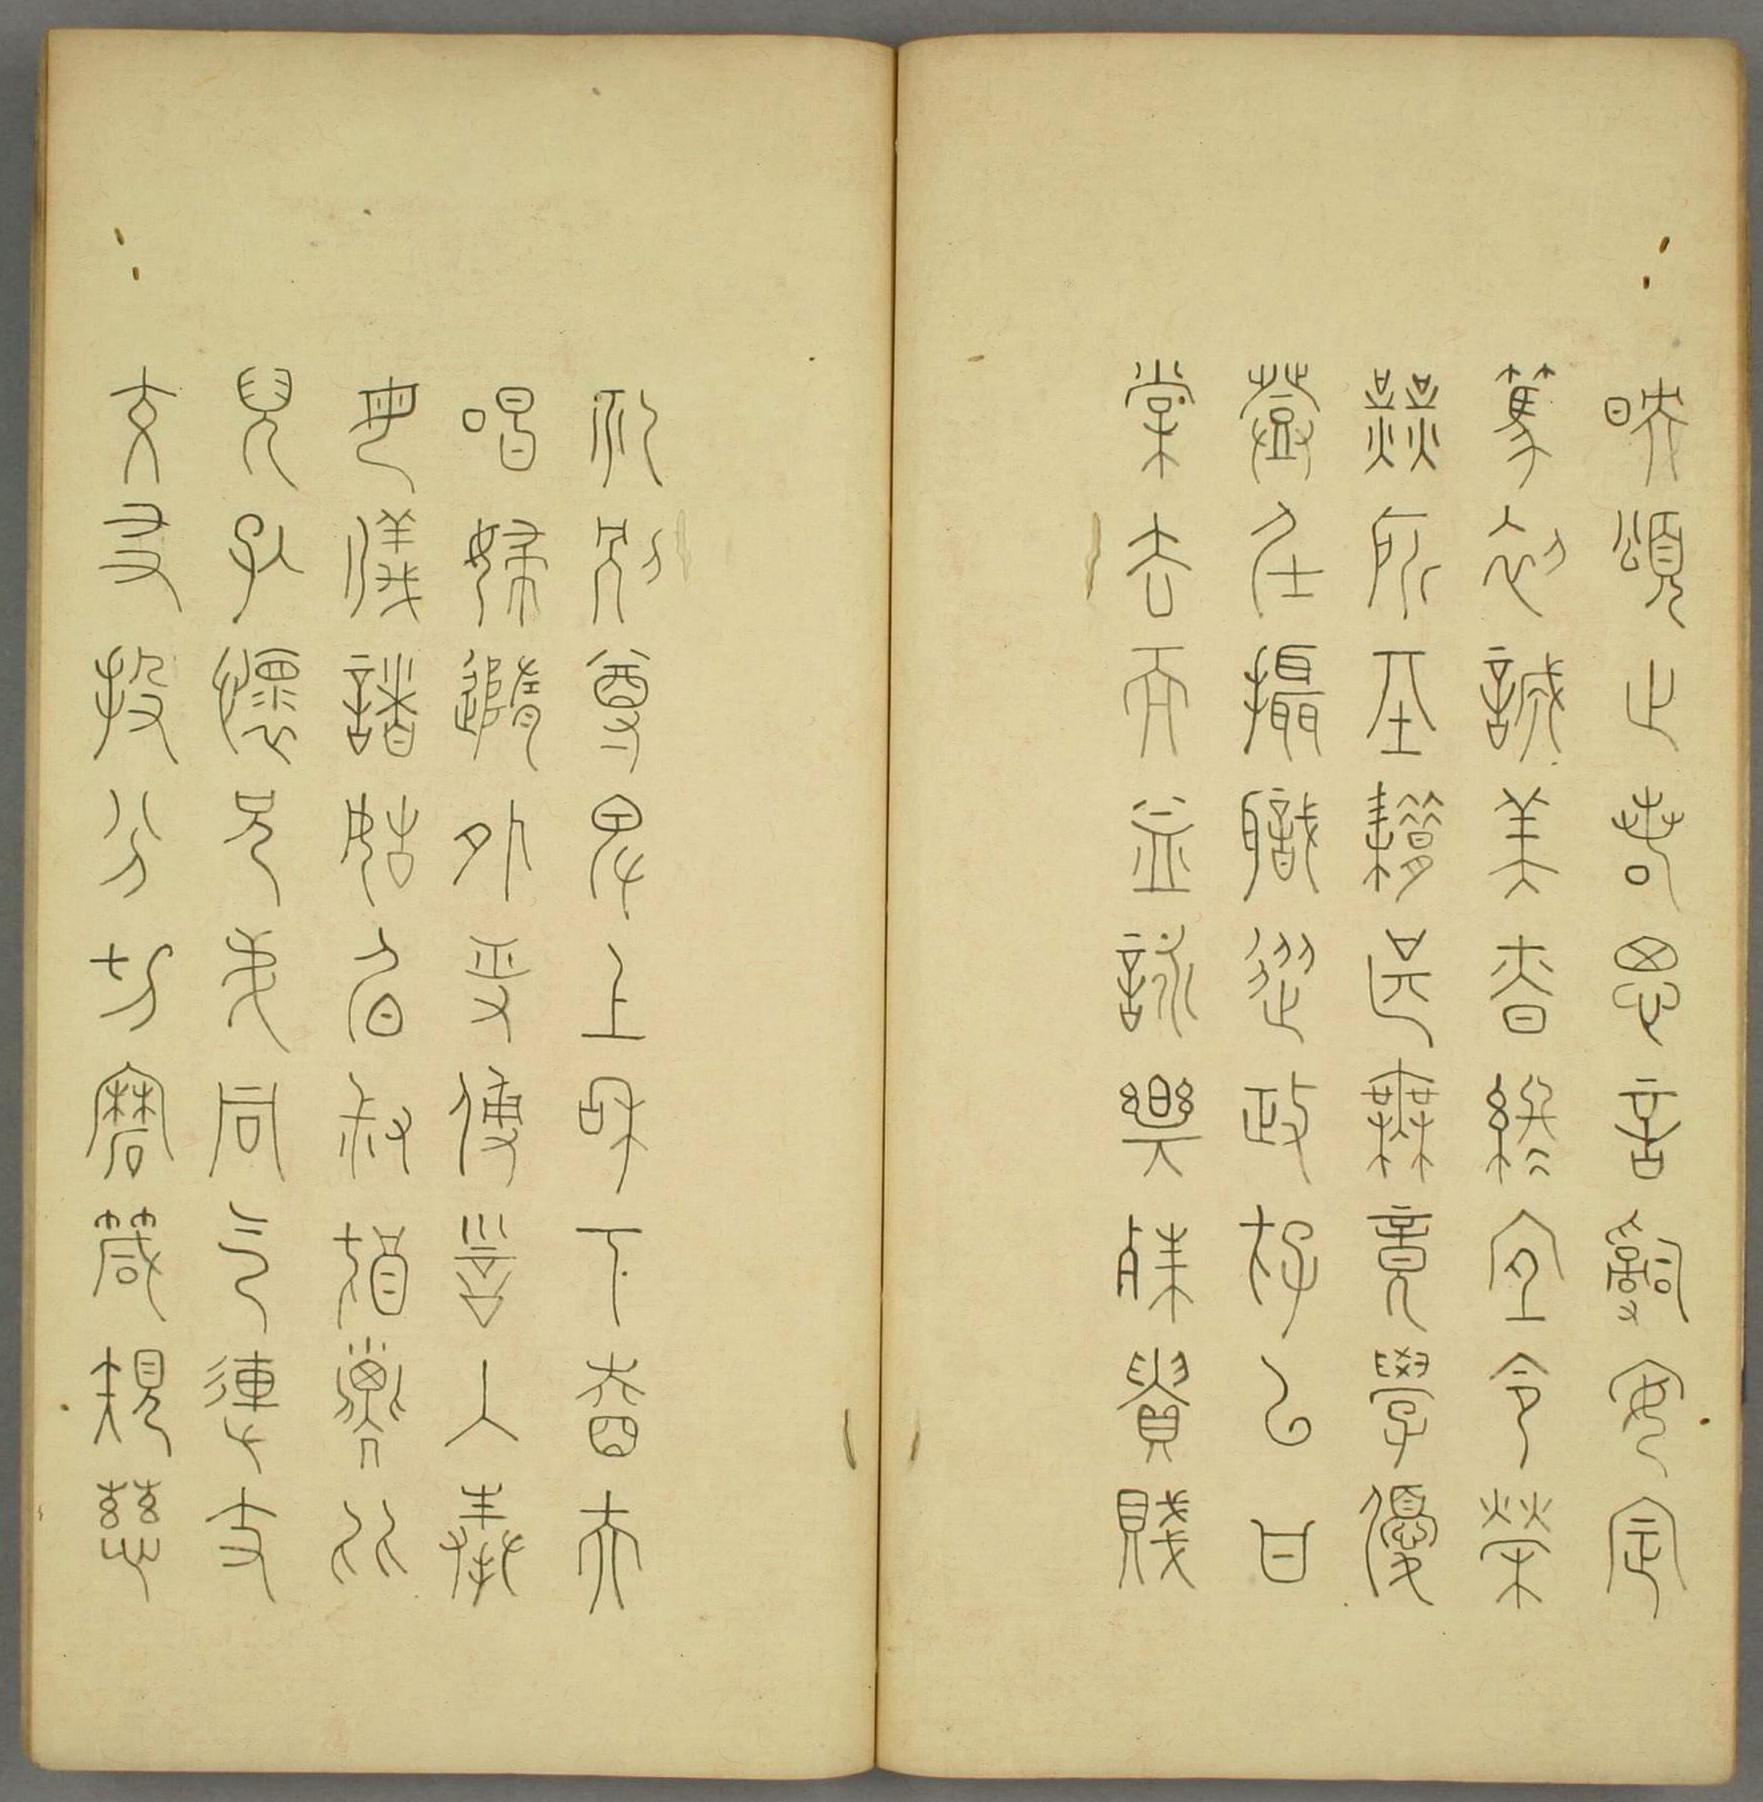 映頌止若思言辭安定
篤初誠美慎終宜令榮
業所基籍甚無竟學優
登仕攝職從政存以甘
棠去而益詠樂殊貴賤
礼別尊卑上和下睦夫
唱婦隨外受傅訓入奉
母儀諸姑伯叔猶子比
兒孔懷兄弟同气連枝
交友投分切磨箴規慈